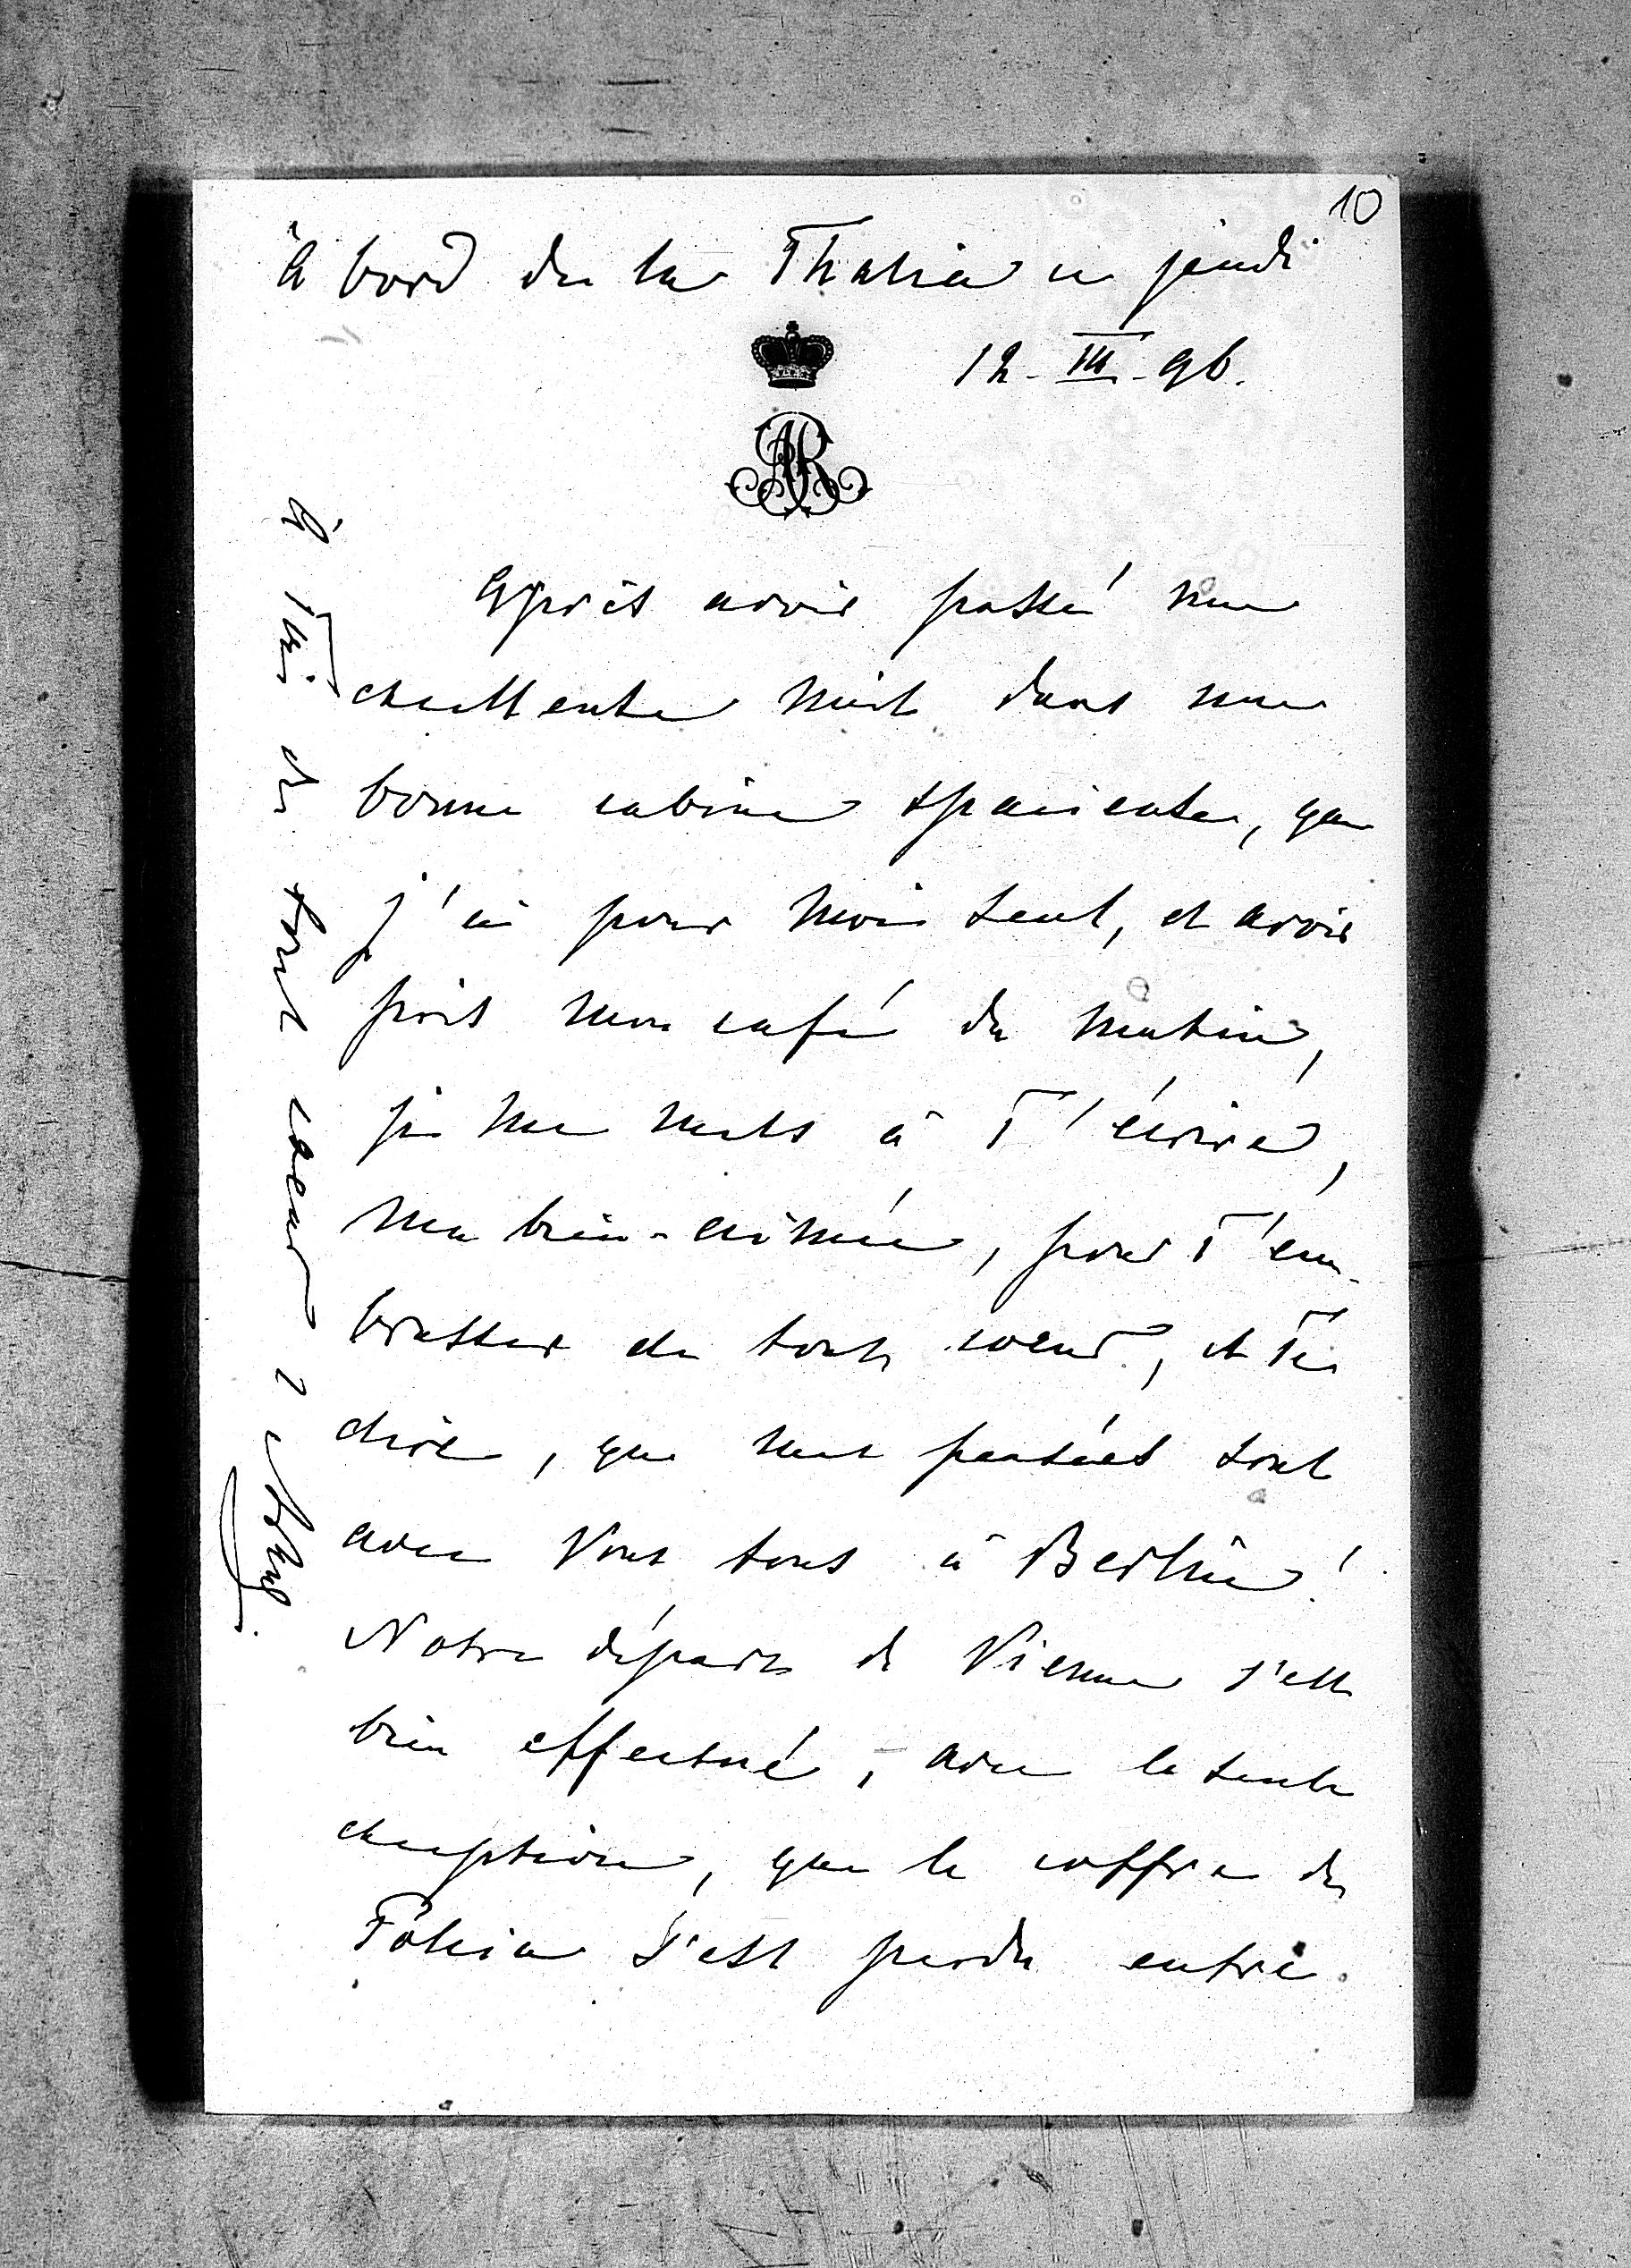 10
à bord de la Thalia ce jeudi
12-III-96.
AR
Après avoir passé une
excellente nuit dans une
bonne cabine spacieuse, que
j'ai pour moi seul, et avoir
pris mon café du matin,
je me mets à T'écrire,
ma bien-aimée, pour T'em-
brasser de tout cœur, et Te
dire, que mes pensées sont
avec Vous tous à Berlin!
Notre départ de Vienne s'est
bien effectué, avec la seule
exception, que le coffre de
s'est perdu entre
à Toi de tout cœur